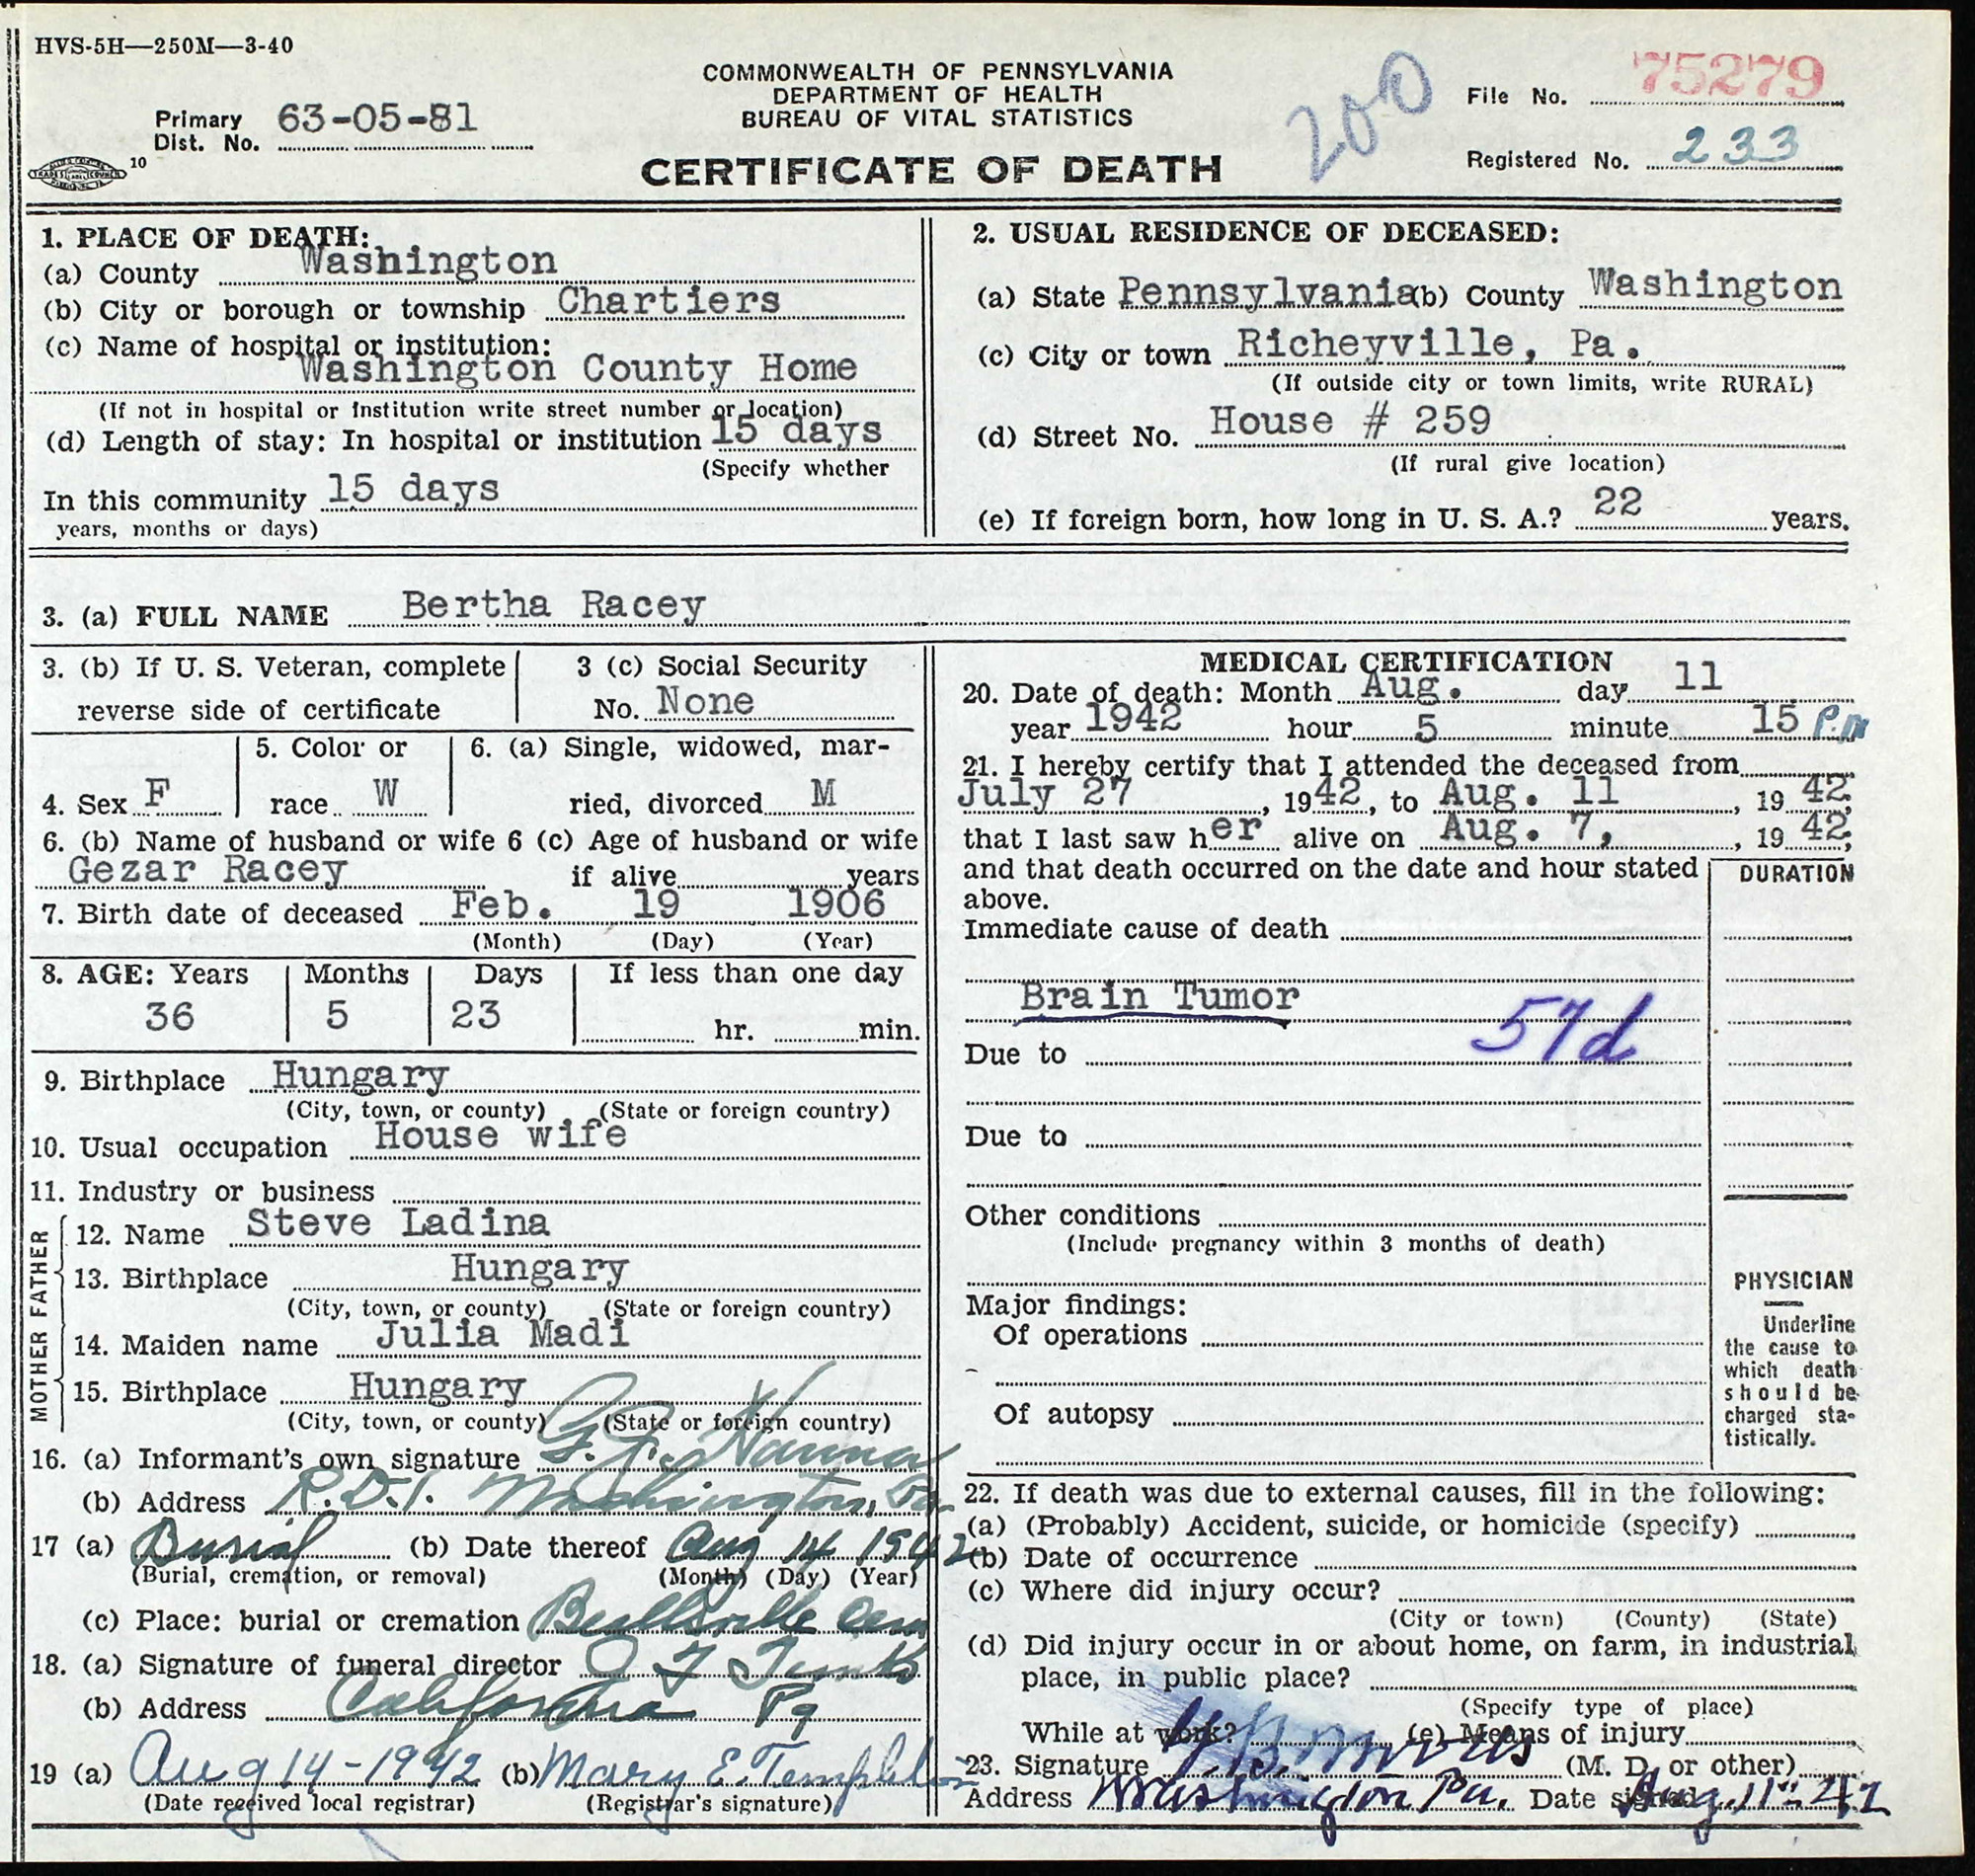 HVS-5H—250M—3-40
COMMONWEALTH OF PENNSYLVANIA
DEPARTMENT OF HEALTH
BUREAU OF VITAL STATISTICS
CERTIFICATE OF DEATH
Primary Dist. No. 63-05-81
10
200
File No. 75279
Registered No. 233
1. PLACE OF DEATH:
(a) County Washington
(b) City or borough or township Chartiers
(c) Name of hospital or institution:
Washington County Home
(If not in hospital or institution write street number or location)
(d) Length of stay: In hospital or institution 15 days
(Specify whether
In this community 15 days
years, months or days)
2. USUAL RESIDENCE OF DECEASED:
(a) State Pennsylvania (b) County Washington
(c) City or town Richeyville, Pa.
(If outside city or town limits, write RURAL)
(d) Street No. House # 259
(If rural give location)
(e) If foreign born, how long in U. S. A.? 22 years.
3. (a) FULL NAME Bertha Racey
3. (b) If U. S. Veteran, complete
reverse side of certificate
3 (c) Social Security
No. None
4. Sex F
5. Color or
race W
6. (a) Single, widowed, mar-
ried, divorced M
6. (b) Name of husband or wife 6 (c) Age of husband or wife
Gezar Racey if alive years
7. Birth date of deceased Feb. 19 1906
(Month) (Day) (Year)
8. AGE: Years Months Days If less than one day
36 5 23 hr. min.
9. Birthplace Hungary
(City, town, or county) (State or foreign country)
10. Usual occupation House wife
11. Industry or business
FATHER
12. Name Steve Ladina
13. Birthplace Hungary
(City, town, or county) (State or foreign country)
MOTHER
14. Maiden name Julia Madi
15. Birthplace Hungary
(City, town, or county) (State or foreign country)
16. (a) Informant's own signature Hanna
(b) Address R.D.1. Washington, Pa.
17 (a) Burial (b) Date thereof Aug 14 1942
(Burial, cremation, or removal) (Month) (Day) (Year)
(c) Place: burial or cremation Beallsville Cem
18. (a) Signature of funeral director
(b) Address California Pa
19 (a) Aug 14-1942 (b) Mary E. Templeton
(Date received local registrar) (Registrar's signature)
MEDICAL CERTIFICATION
20. Date of death: Month Aug. day 11
year 1942 hour 5 minute 15 P.m
21. I hereby certify that I attended the deceased from
July 27, 1942, to Aug. 11, 1942;
that I last saw her alive on Aug. 7,, 1942;
and that death occurred on the date and hour stated
above.
DURATION
Immediate cause of death
Brain Tumor
57d
Due to
Due to
Other conditions
(Include pregnancy within 3 months of death)
Major findings:
Of operations
Of autopsy
PHYSICIAN
Underline
the cause to
which death
should be
charged sta-
tistically.
22. If death was due to external causes, fill in the following:
(a) (Probably) Accident, suicide, or homicide (specify)
(b) Date of occurrence
(c) Where did injury occur?
(City or town) (County) (State)
(d) Did injury occur in or about home, on farm, in industrial
place, in public place?
(Specify type of place)
While at work? (e) Means of injury
23. Signature (M. D. or other)
Address Washington Pa. Date signed Aug. 11th 42